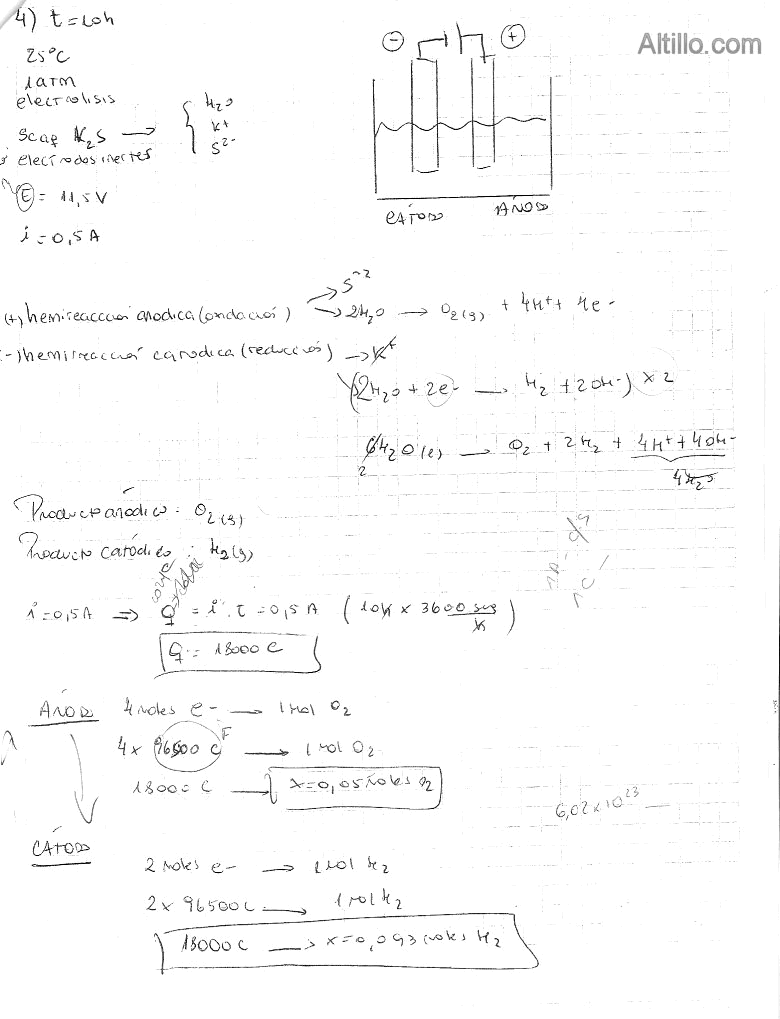 4) t=10h
Altillo.com
25°C
1 atm
electrolisis
Scaq K₂S → H₂O
K+
S²⁻
electrodos inertes
E = 11,5 V
i = 0,5 A
⊖ ⊕
CÁTODO ÁNODO
S⁻²
(+) hemireacción anodica (oxidación) → 2H₂O → O₂(g) + 4H⁺ + 4e-
(-) hemireacción catodica (reducción) → K+
(2H₂O + 2e- → H₂ + 2OH-) x 2
6H₂O(l) → O₂ + 2H₂ + 4H⁺ + 4OH-
2
4H₂O
Producto anódico: O₂(g)
Producto catódico: H₂(g)
i=0,5A ⇒ q = i . t = 0,5 A (10h x 3600 seg/h)
q = 18000 C
ÁNODO 4 moles e- → 1 mol O₂
4 x 96500 C → 1 mol O₂
F
18000 C → x=0,05 moles O₂
6,02x10²³
CÁTODO
2 moles e- → 1 mol H₂
2 x 96500 C → 1 mol H₂
18000 C → x=0,093 moles H₂